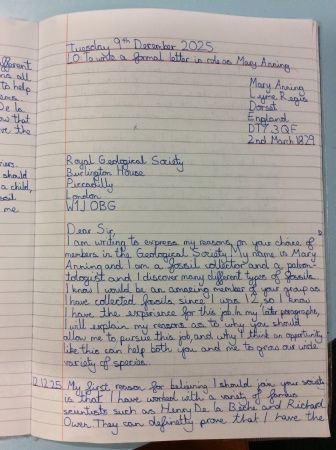 fferent
ns all
to help
ems.
De la
ow that
ve the
ners.
should
a child,
ssil
me
Tuesday 9th December 2025
LO: To write a formal letter in role as Mary Anning.
Mary Anning
Lyme Regis
Dorset
England
DT7 3QF
2nd March 1829
Royal Geological Society
Burlington House
Piccadilly
London
W1J OBG
Dear Sir,
I am writing to express my reasons on your choice of
members in the Geological Society. My name is Mary
Anning and I am a fossil collector and a paleon-
tologist and I discover many different types of fossils.
I know I would be an amazing member of your group as
I have collected fossils since I was 12, so I know
I have the experience for this job. In my later paragraphs,
I will explain my reasons as to why you should
allow me to pursue this job, and why I think an opportunity
like this can help both you and me to grow our wide
variety of species.
12.12.25 My first reason for believing I should join your society
is that I have worked with a variety of famous
scientists such as Henry De la Bèche and Richard
Owen. They can definetly prove that I have the